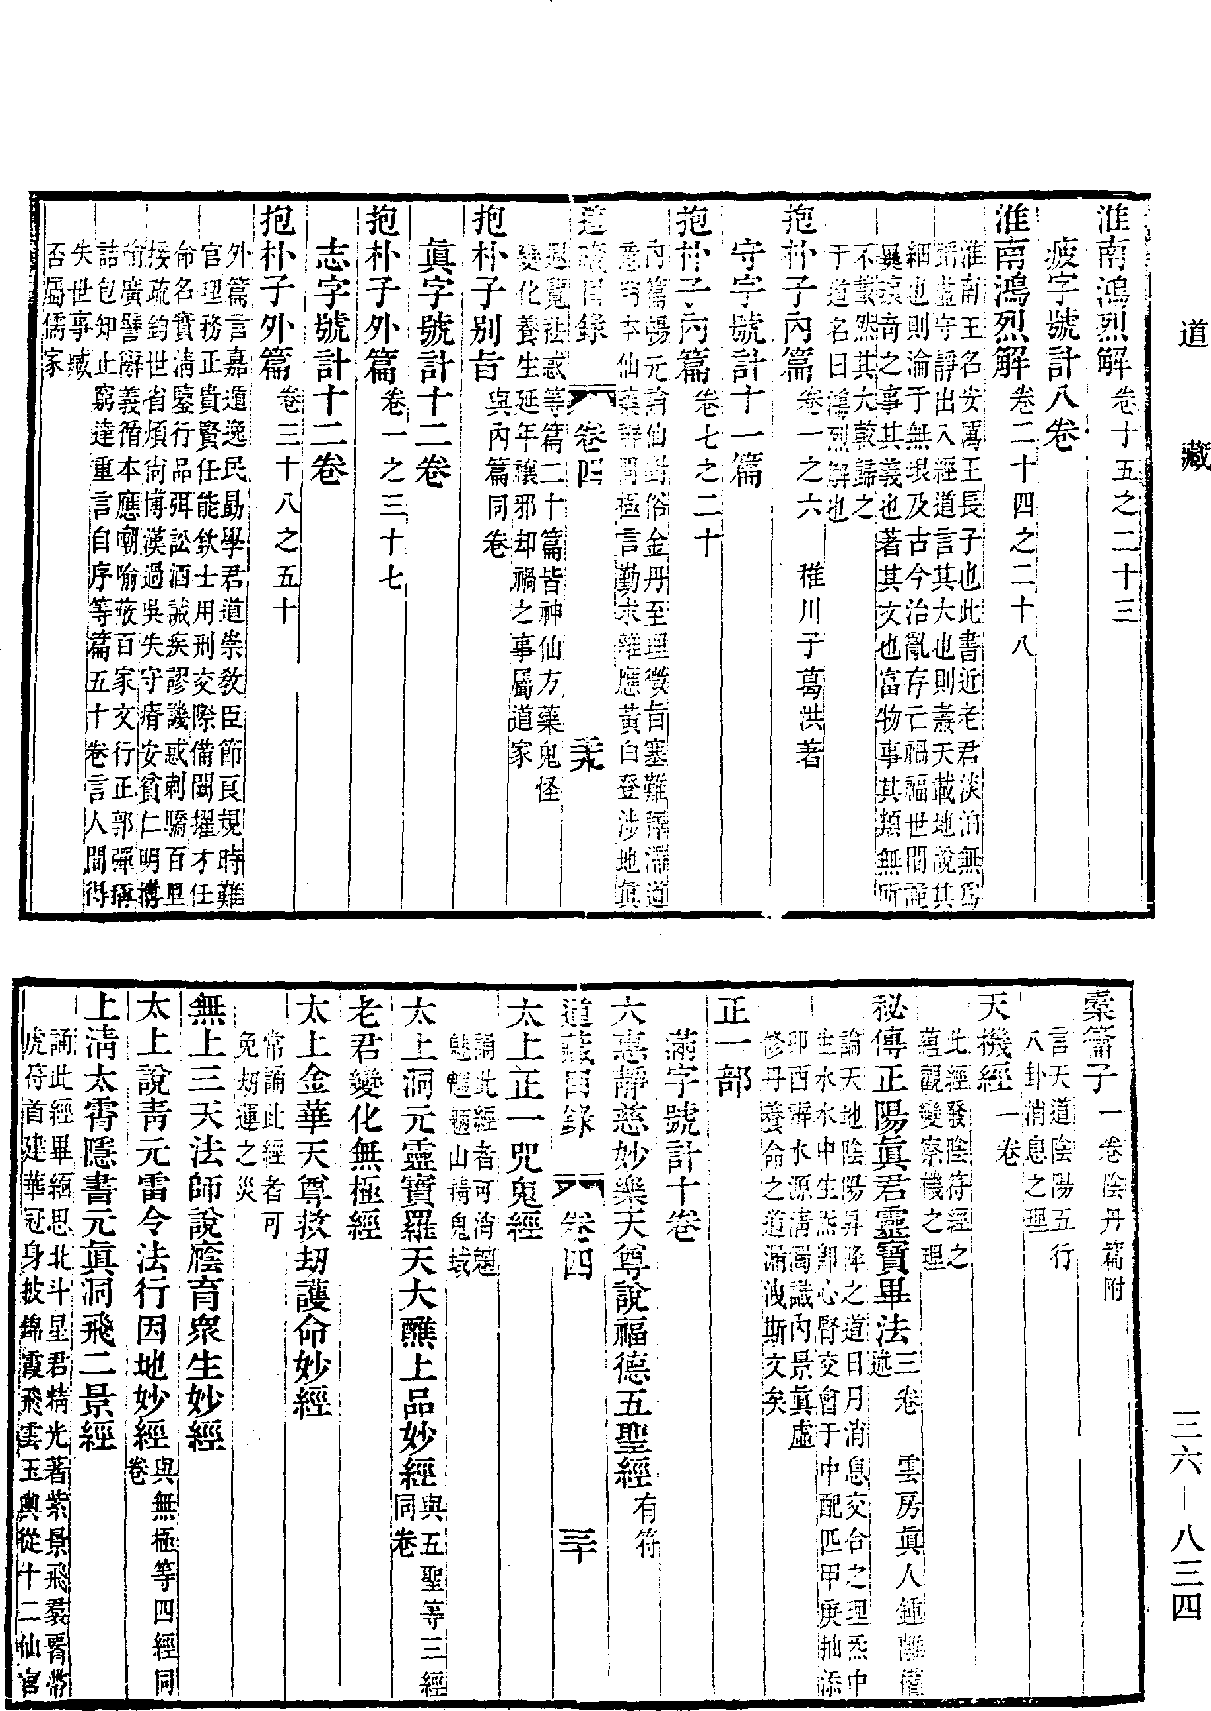 道藏
淮南鴻烈解卷十五之二十三
疲字號計八卷
淮南鴻烈解卷二十四之二十八
淮南王名安厲王長子也此書近老君淡泊無爲
蹈虛守靜出入經道言其大也則燾天載地說其
細也則淪于無垠及古今治亂存亡禍福世間詭
異瓌奇之事其義也著其文也富物事其類無所
不載然其大較歸之
于道名曰鴻烈解也
抱朴子內篇卷一之六 稚川子葛洪著
守字號計十一篇
抱朴子內篇卷七之二十
內篇暢元論仙對俗金丹至理微旨塞難釋滯道
意明本仙藥辨問極言勤求雜應黃白登涉地眞
道藏目錄 卷四 三十九
遐覽祛惑等篇二十篇皆神仙方藥鬼怪
變化養生延年禳邪却禍之事屬道家
抱朴子別旨與內篇同卷
眞字號計十二卷
抱朴子外篇卷一之三十七
志字號計十二卷
抱朴子外篇卷三十八之五十
外篇言嘉遯逸民勗學君道崇教臣節良規時難
官理務正貴賢任能欽士用刑交際備闕擢才任
命名實清鑒行品弭訟酒誡疾謬譏惑刺驕百里
接疏鈞世省煩尚博漢過吳失守塉安貧仁明博
喻廣譬辭義循本應嘲喻蔽百家文行正郭彈禰
詰包知止窮達重言自序等篇五十卷言人間得
失世事臧
否屬儒家
橐籥子一卷陰丹篇附
言天道陰陽五行
八卦消息之理
天機經一卷
此經發陰符經之
蘊觀變察機之理
秘傳正陽眞君靈寶畢法三卷 雲房眞人鍾離權述
論天地陰陽昇降之道日月消息交合之理炁中
生水水中生炁卽心腎交會于中配匹甲庚抽添
卯酉辨水源清濁識內景眞虛
修丹養命之道漏洩斯文矣
正一部
滿字號計十卷
六惠靜慈妙樂天尊說福德五聖經有符
道藏目錄 卷四 四十
太上正一咒鬼經
誦此經者可消魍
魅魑魎山精鬼蜮
太上洞元靈寶羅天大醮上品妙經與五聖等三經同卷
老君變化無極經
太上金華天尊救劫護命妙經
常誦此經者可
免劫運之災
無上三天法師說廕育衆生妙經
太上說青元雷令法行因地妙經與無極等四經同卷
上清太霄隱書元眞洞飛二景經
誦此經畢緬思北斗星君精光著紫景飛裙帶
虎符首建華冠身披錦霞飛雲玉輿從十二仙官
三六－八三四